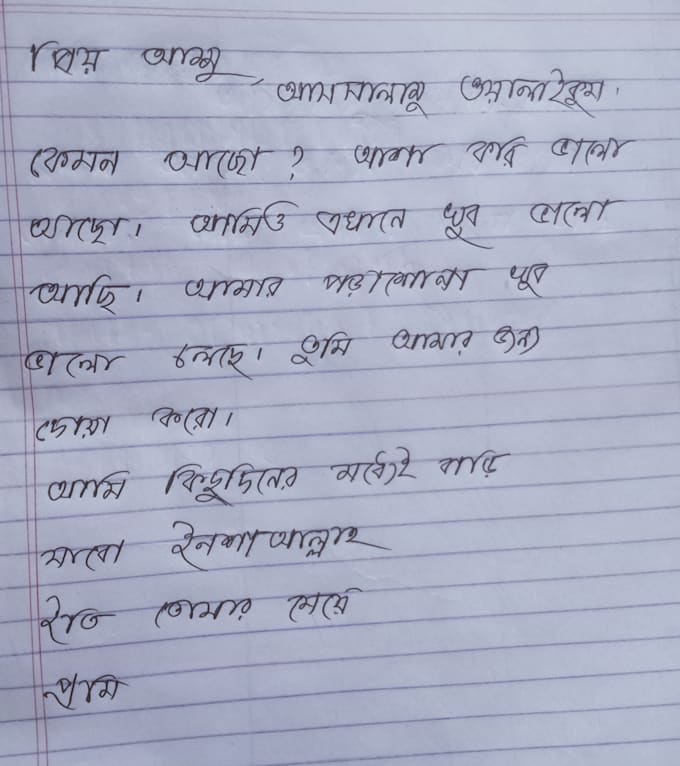 প্রিয় আম্মু,
আসসালামু ওয়ালাইকুম।
কেমন আছো? আশা করি ভালো
আছো। আমিও এখানে খুব ভালো
আছি। আমার পড়াশোনা খুব
ভালো চলছে। তুমি আমার জন্য
দোয়া করো।
আমি কিছুদিনের মধ্যেই বাড়ি
যাবো ইনশাআল্লাহ
ইতি তোমার মেয়ে